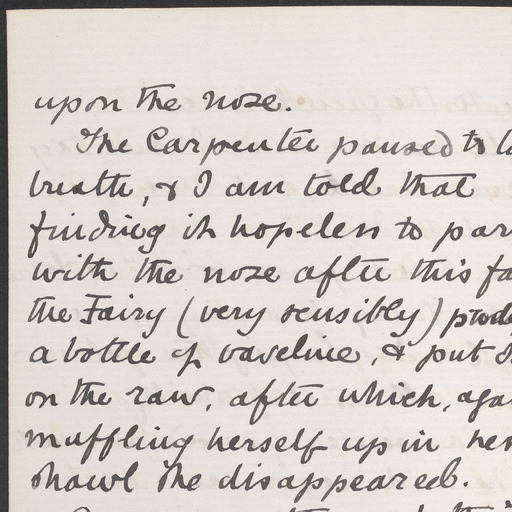 upon the nose.
The Carpenter paused to
breath, & I am told that
finding it hopeless to
with the nose after this
the Fairy (very sensibly)
a bottle of vaseline, & put
on the raw, after which,
muffling herself up in
shawl she disappeared.